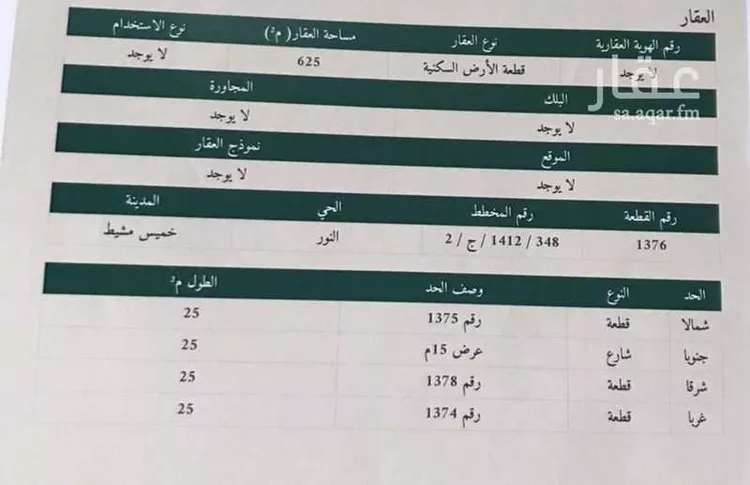 العقار
رقم الهوية العقارية نوع العقار مساحة العقار( م²) نوع الاستخدام
لا يوجد قطعة الأرض السكنية 625 لا يوجد
البلك المجاورة
لا يوجد لا يوجد
الموقع نموذج العقار
لا يوجد لا يوجد
رقم القطعة رقم المخطط الحي المدينة
1376 348 / 1412 / ج / 2 النور خميس مشيط
الحد النوع وصف الحد الطول م²
شمالا قطعة رقم 1375 25
جنوبا شارع عرض 15م 25
شرقا قطعة رقم 1378 25
غربا قطعة رقم 1374 25
عقار
sa.aqar.fm